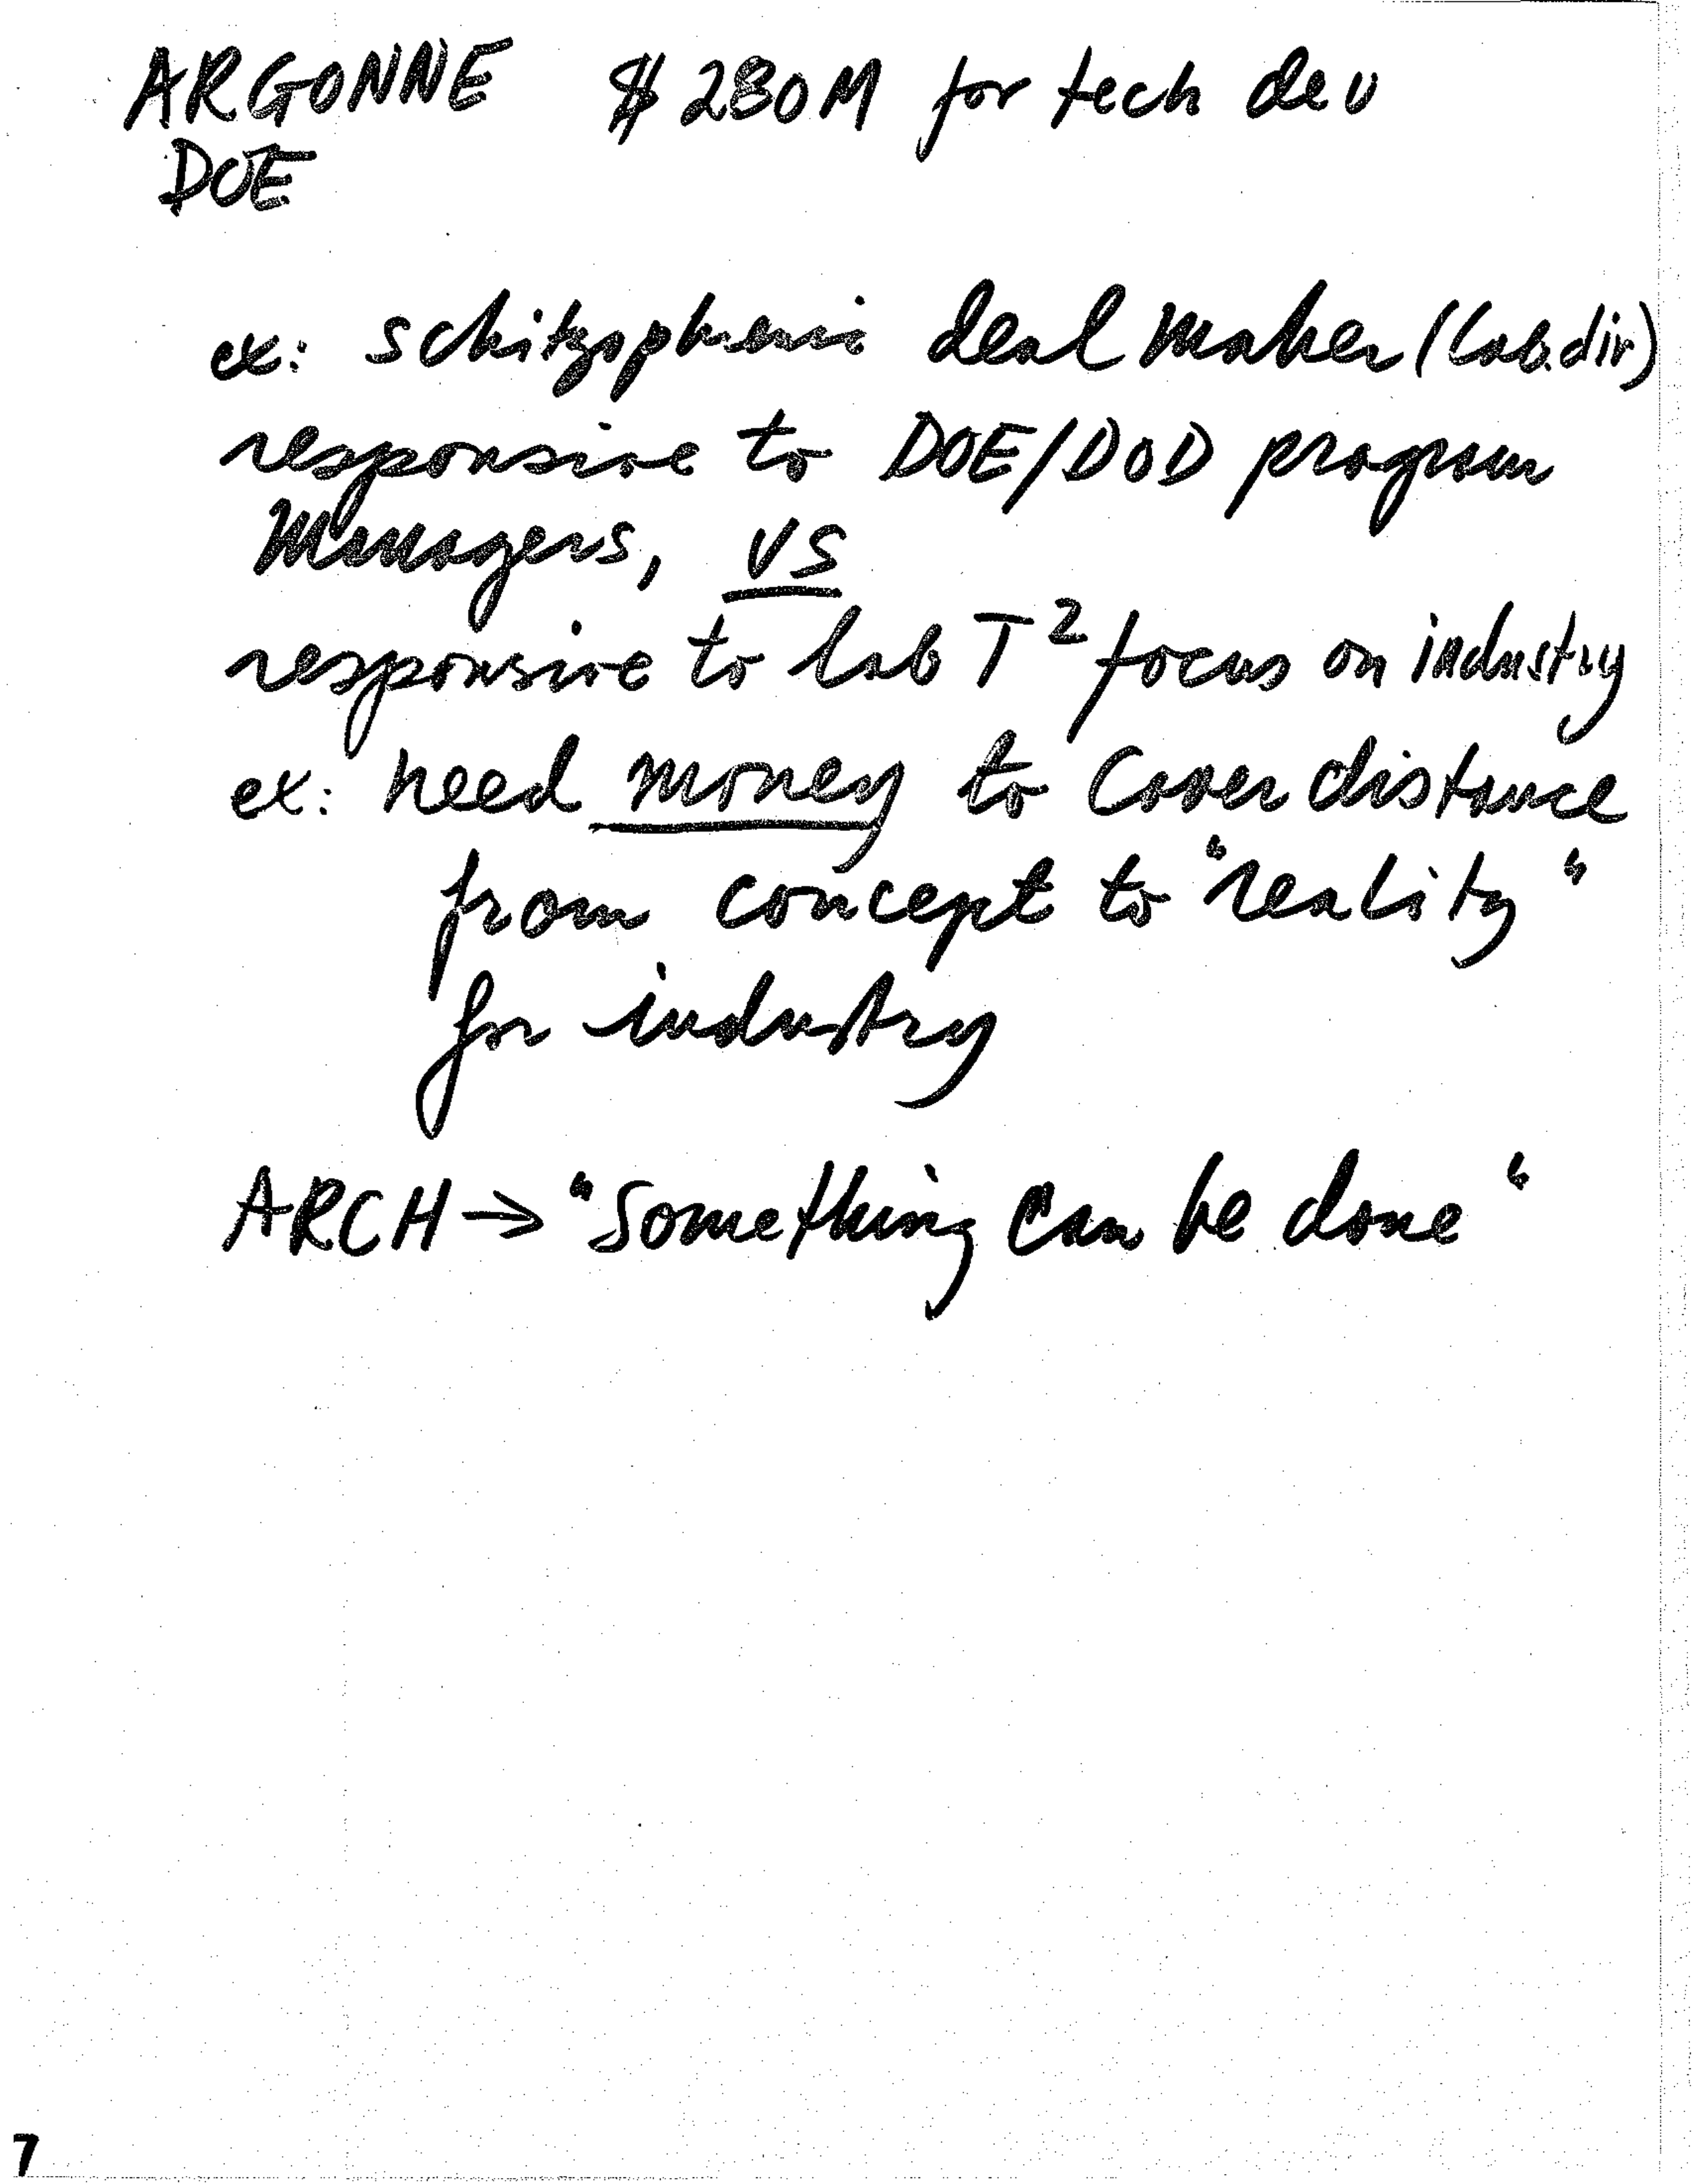 ARGONNE $ 280M for tech dev
DOE
ex: schitzophrenic deal maker (lab.dir)
responsive to DOE/DOD program
Managers, vs
responsive to lab T² focus on industry
ex: need money to cover distance
from concept to "reality"
for industry
ARCH → "Something can be done"
7